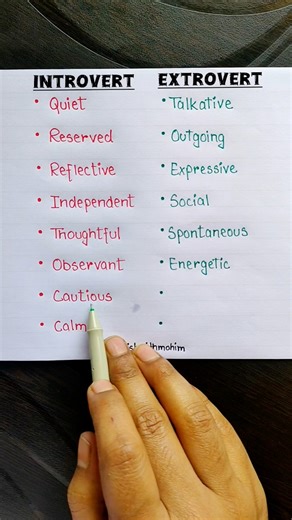 INTROVERT EXTROVERT
• Quiet • Talkative
• Reserved • Outgoing
• Reflective • Expressive
• Independent • Social
• Thoughtful • Spontaneous
• Observant • Energetic
• Cautious •
• Calm •